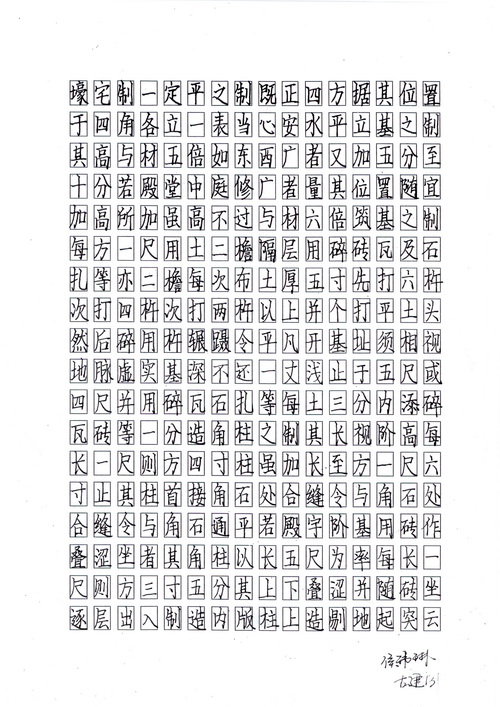 壕宅制一定平之制既正四方据其位置
于四角各立一表当心安水平立基之制
其高与材五倍如东西广者又加五分至
十分若殿堂中庭修广者量其位置随宜
加高所加虽高不过与材六倍筑基之制
每方一尺用土二檐隔层用碎砖瓦及石
扎等亦二檐每次布土厚五寸先打六杵
次打四杵次打两杵以上并个打平土头
然后碎用杵辗蹑令平凡开基址须相视
地脉虚实基深不还一丈浅止于五尺或
四尺并用碎瓦石扎等每土三分内添碎
瓦砖等一分造角柱之制其长视阶高每
长一尺则方四寸柱虽加长至方一尺六
寸止其柱首接角石处合缝令与角石处
合缝令与角石通平若殿宇阶基用砖作
叠涩坐者其角柱以长五尺为率每长一
尺则方三寸五分其上下叠涩并随砖坐
逐层出入制造内版柱上造剔地起突云
古建